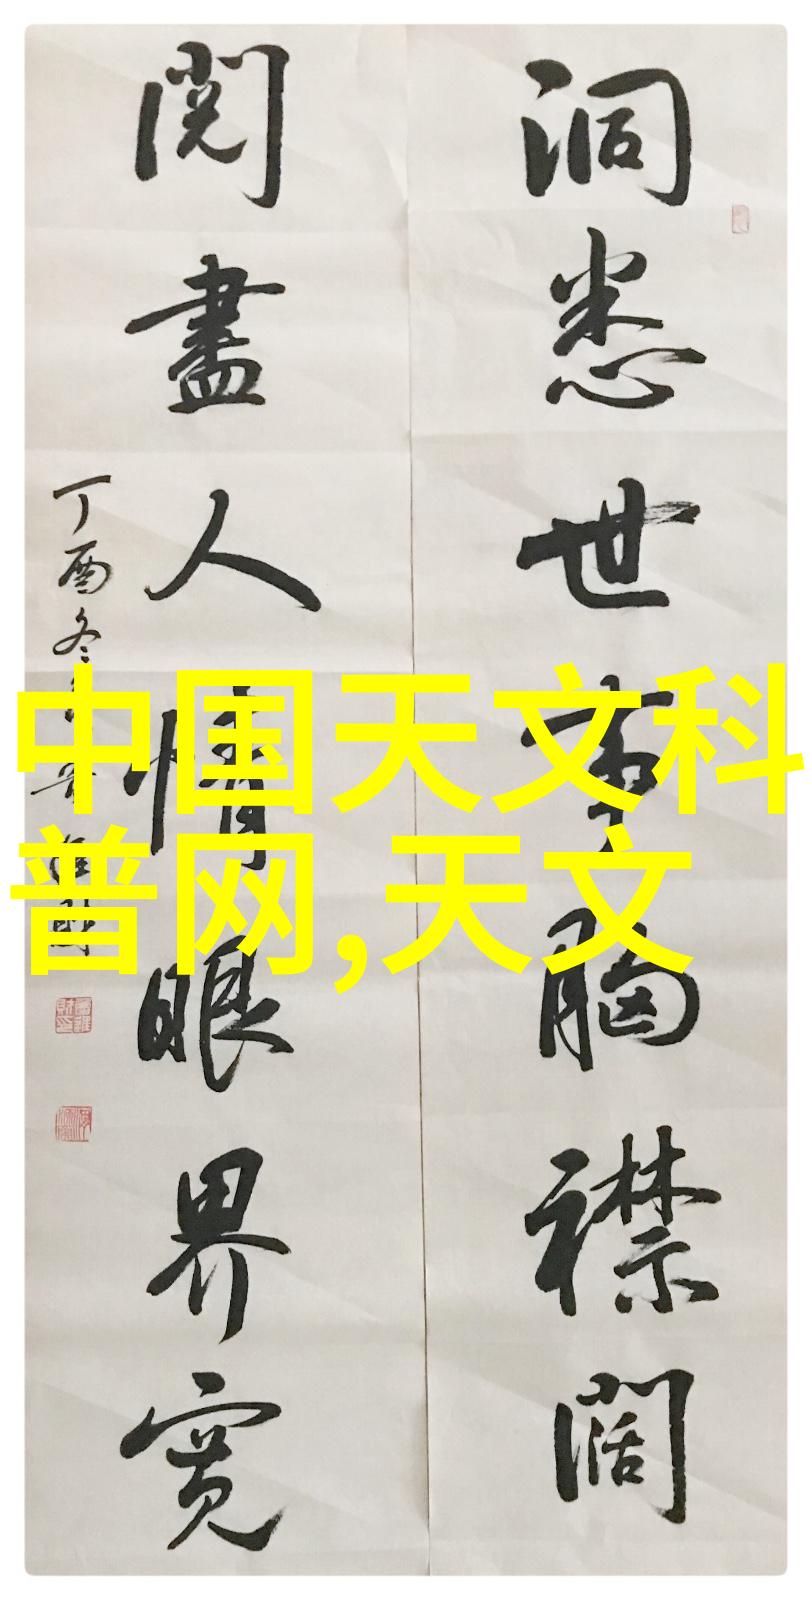 洞悉世事胸襟闊
閱盡人情眼界寬
丁酉冬
中国天文科
普网,天文